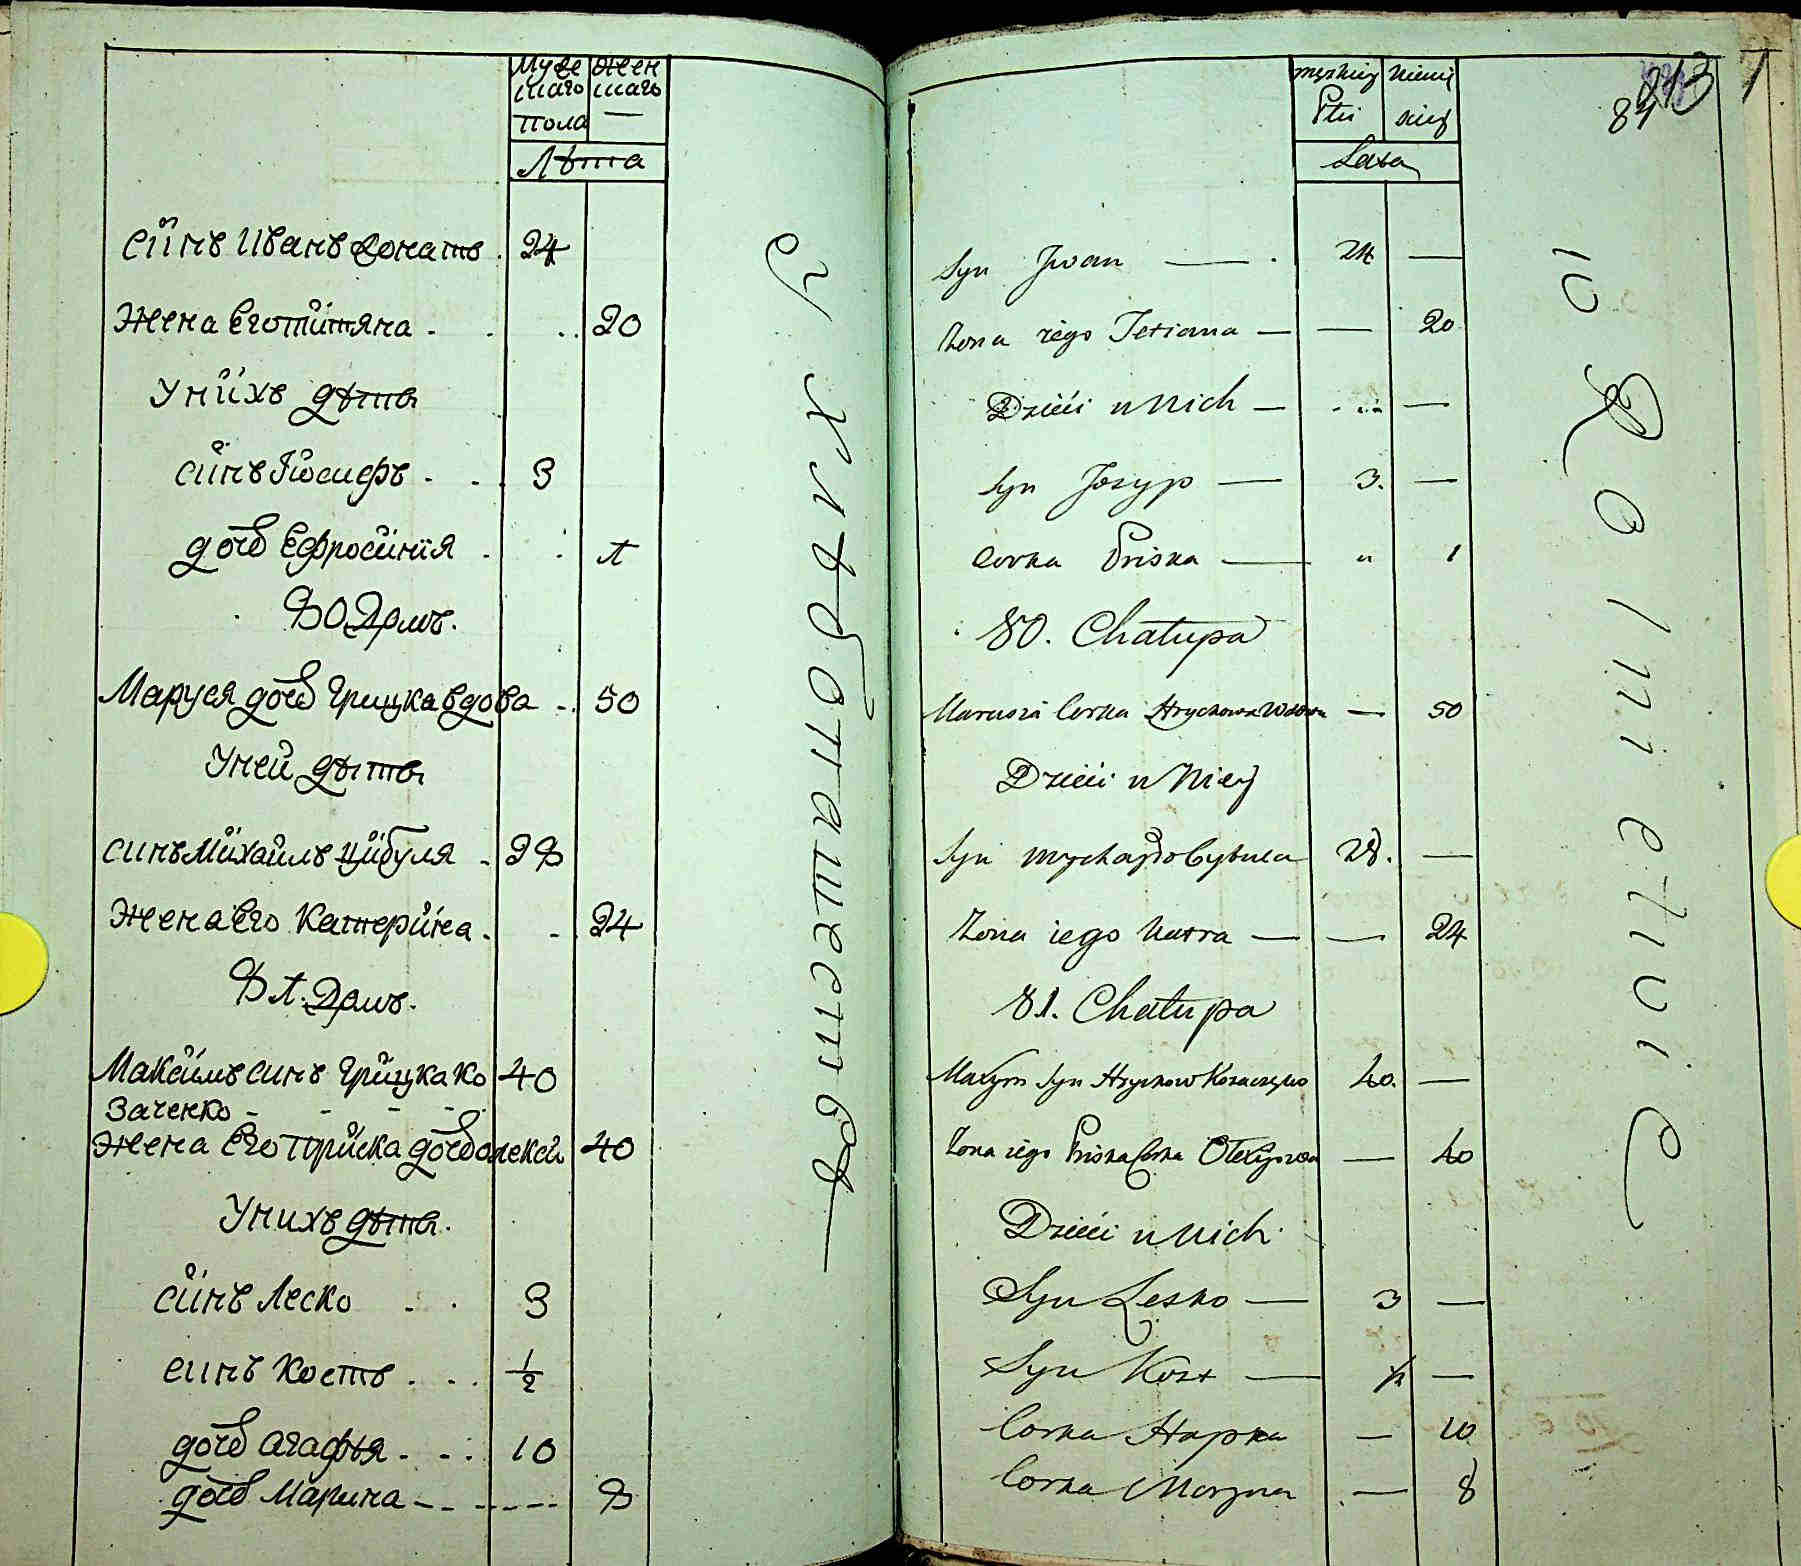 Муже Жен
скаго скаго
пола —
Лѣта
Синъ Иванъ Донатъ . 24
Жена Его титяна . . . . 20
Унихъ дѣти
синъ Йосифъ . . . 3
дочь Ефросинія . . . 1
80 Домъ.
Маруся дочь Грицка вдова . . 50
Уней дѣти
синъ Михайлъ цибуля . 28
Жена Его Катерина . . . 24
81. Домъ.
Максимъ синъ Грицка Ко 40
заченко - - - -
Жена ЕгоПриска дочь олекси 40
Унихъ дѣти.
синъ Леско . . 3
синъ Кость . . . 1/2
дочь агафья . . . 10
дочь Марина - - - - - - 8
У хлѣбопашествѣ —
męskiej żeńs
Płci kiej
Lata
213 7
84
Syn Jwan — . 24 —
Żona iego Tetiana — — 20
Dzieci u Nich — . . . —
Syn Jozyp — 3. —
Corka Priska — " 1
80. Chałupa
Marusia Corka Hryckowa Wdowa — 50
Dzieci u Niey
Syn Mychayło Cybula 28. —
Żona iego Katra — — 24
81. Chałupa
Maxym Syn Hryckow Kozaczenko 40. —
Żona iego Priska Corka Olexijowa — 40
Dzieci u Nich
Syn Lesko — 3 —
Syn Kost — 1/2 —
Corka Hapka — 10
Corka Maryna . — 8
w Rolnictwie